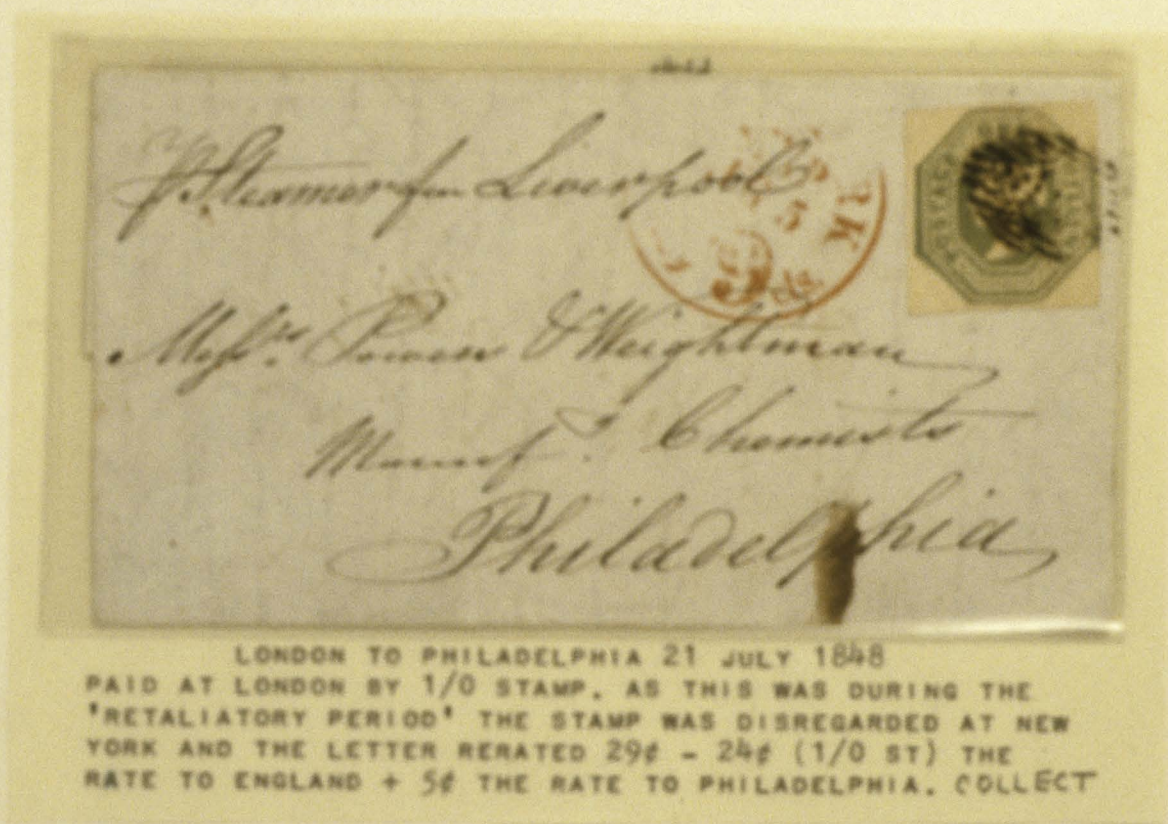 Steamer from Liverpool
RK
5
Messrs. Powers & Weightman
Manuf. Chemists
Philadelphia
LONDON TO PHILADELPHIA 21 JULY 1848
PAID AT LONDON BY 1/0 STAMP. AS THIS WAS DURING THE
'RETALIATORY PERIOD' THE STAMP WAS DISREGARDED AT NEW
YORK AND THE LETTER RERATED 29¢ - 24¢ (1/0 ST) THE
RATE TO ENGLAND + 5¢ THE RATE TO PHILADELPHIA. COLLECT